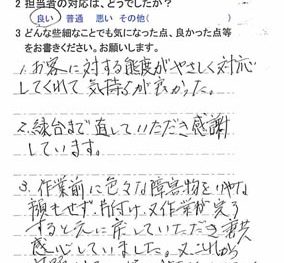 2 担当者の対応は、どうでしたか?
良い 普通 悪い その他(
3 どんな些細なことでも気になった点、良かった点等
をお書きください。お願いします。
1. お客に対する態度がやさしく対応
してくれて気持が良かった。
2. 縁台まで直していただき感謝
しています。
3. 作業前に色々な障害物をいやな
顔もせず、片付け、又作業が完了
すると元に戻していただき
感心していました。又これから